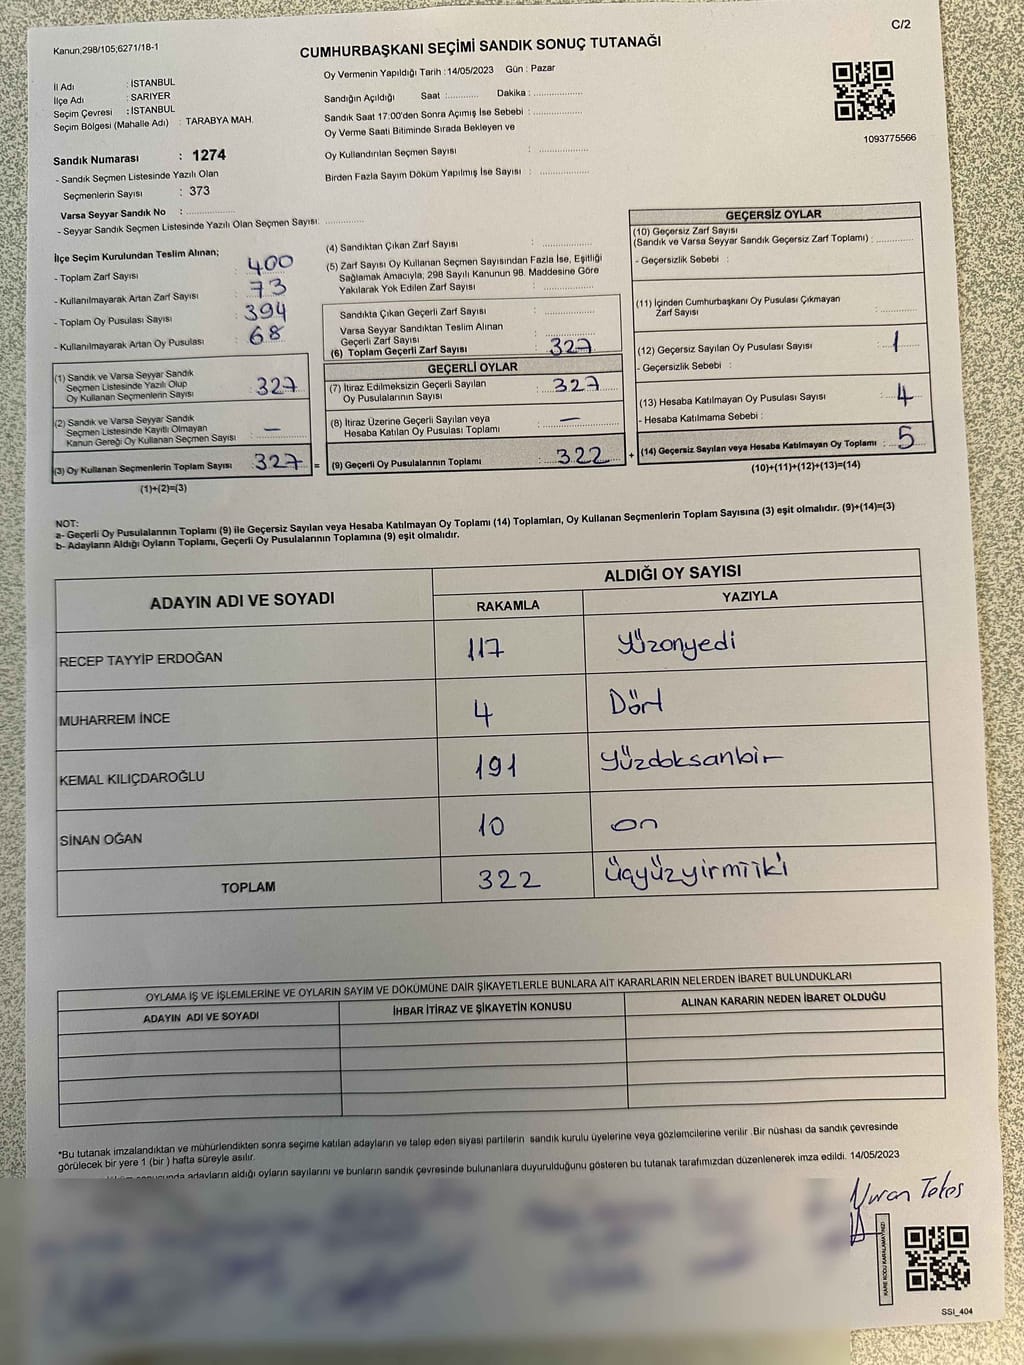 C/2
Kanun;298/105;6271/18-1
CUMHURBAŞKANI SEÇİMİ SANDIK SONUÇ TUTANAĞI
İl Adı : İSTANBUL
İlçe Adı : SARIYER
Seçim Çevresi : İSTANBUL
Seçim Bölgesi (Mahalle Adı) : TARABYA MAH.
Sandık Numarası : 1274
- Sandık Seçmen Listesinde Yazılı Olan
Seçmenlerin Sayısı : 373
Varsa Seyyar Sandık No : ................
- Seyyar Sandık Seçmen Listesinde Yazılı Olan Seçmen Sayısı: ............
Oy Vermenin Yapıldığı Tarih :14/05/2023 Gün : Pazar
Sandığın Açıldığı Saat :.......... Dakika : ................
Sandık Saat 17:00'den Sonra Açımış İse Sebebi : ................
Oy Verme Saati Bitiminde Sırada Bekleyen ve
Oy Kullandırılan Seçmen Sayısı : ................
Birden Fazla Sayım Döküm Yapılmış İse Sayısı : ................
1093775566
İlçe Seçim Kurulundan Teslim Alınan;
- Toplam Zarf Sayısı : 400
- Kullanılmayarak Artan Zarf Sayısı : 73
- Toplam Oy Pusulası Sayısı : 394
- Kullanılmayarak Artan Oy Pusulası : 68
(1) Sandık ve Varsa Seyyar Sandık
Seçmen Listesinde Yazılı Olup
Oy Kullanan Seçmenlerin Sayısı : 327
(2) Sandık ve Varsa Seyyar Sandık
Seçmen Listesinde Kayıtlı Olmayan
Kanun Gereği Oy Kullanan Seçmen Sayısı : —
(3) Oy Kullanan Seçmenlerin Toplam Sayısı : 327 =
(1)+(2)=(3)
(4) Sandıktan Çıkan Zarf Sayısı : ................
(5) Zarf Sayısı Oy Kullanan Seçmen Sayısından Fazla İse, Eşitliği
Sağlamak Amacıyla, 298 Sayılı Kanunun 98. Maddesine Göre
Yakılarak Yok Edilen Zarf Sayısı : ................
Sandıkta Çıkan Geçerli Zarf Sayısı : ................
Varsa Seyyar Sandıktan Teslim Alınan
Geçerli Zarf Sayısı : ................
(6) Toplam Geçerli Zarf Sayısı : 327
GEÇERLİ OYLAR
(7) İtiraz Edilmeksizin Geçerli Sayılan
Oy Pusulalarının Sayısı : 327
(8) İtiraz Üzerine Geçerli Sayılan veya
Hesaba Katılan Oy Pusulası Toplamı : —
(9) Geçerli Oy Pusulalarının Toplamı : 322 +
GEÇERSİZ OYLAR
(10) Geçersiz Zarf Sayısı
(Sandık ve Varsa Seyyar Sandık Geçersiz Zarf Toplamı) : ............
- Geçersizlik Sebebi :
(11) İçinden Cumhurbaşkanı Oy Pusulası Çıkmayan
Zarf Sayısı : ............
(12) Geçersiz Sayılan Oy Pusulası Sayısı : 1
- Geçersizlik Sebebi :
(13) Hesaba Katılmayan Oy Pusulası Sayısı : 4
- Hesaba Katılmama Sebebi :
(14) Geçersiz Sayılan veya Hesaba Katılmayan Oy Toplamı : 5
(10)+(11)+(12)+(13)=(14)
NOT:
a- Geçerli Oy Pusulalarının Toplamı (9) ile Geçersiz Sayılan veya Hesaba Katılmayan Oy Toplamı (14) Toplamları, Oy Kullanan Seçmenlerin Toplam Sayısına (3) eşit olmalıdır. (9)+(14)=(3)
b- Adayların Aldığı Oyların Toplamı, Geçerli Oy Pusulalarının Toplamına (9) eşit olmalıdır.
ADAYIN ADI VE SOYADI ALDIĞI OY SAYISI
RAKAMLA YAZIYLA
RECEP TAYYİP ERDOĞAN 117 Yüzonyedi
MUHARREM İNCE 4 Dört
KEMAL KILIÇDAROĞLU 191 Yüzdoksanbir
SİNAN OĞAN 10 on
TOPLAM 322 Üçyüzyirmiiki
OYLAMA İŞ VE İŞLEMLERİNE VE OYLARIN SAYIM VE DÖKÜMÜNE DAİR ŞİKAYETLERLE BUNLARA AİT KARARLARIN NELERDEN İBARET BULUNDUKLARI
ADAYIN ADI VE SOYADI İHBAR İTİRAZ VE ŞİKAYETİN KONUSU ALINAN KARARIN NEDEN İBARET OLDUĞU
*Bu tutanak imzalandıktan ve mühürlendikten sonra seçime katılan adayların ve talep eden siyasi partilerin sandık kurulu üyelerine veya gözlemcilerine verilir .Bir nüshası da sandık çevresinde
görülecek bir yere 1 (bir ) hafta süreyle asılır.
adayların aldığı oyların sayılarını ve bunların sandık çevresinde bulunanlara duyurulduğunu gösteren bu tutanak tarafımızdan düzenlenerek imza edildi. 14/05/2023
Nuran
KARE KODU KARALAMAYINIZ!
SSI_404